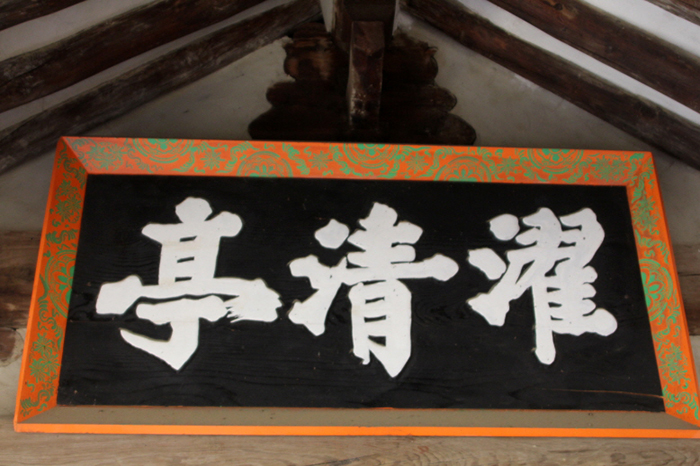 濯清亭